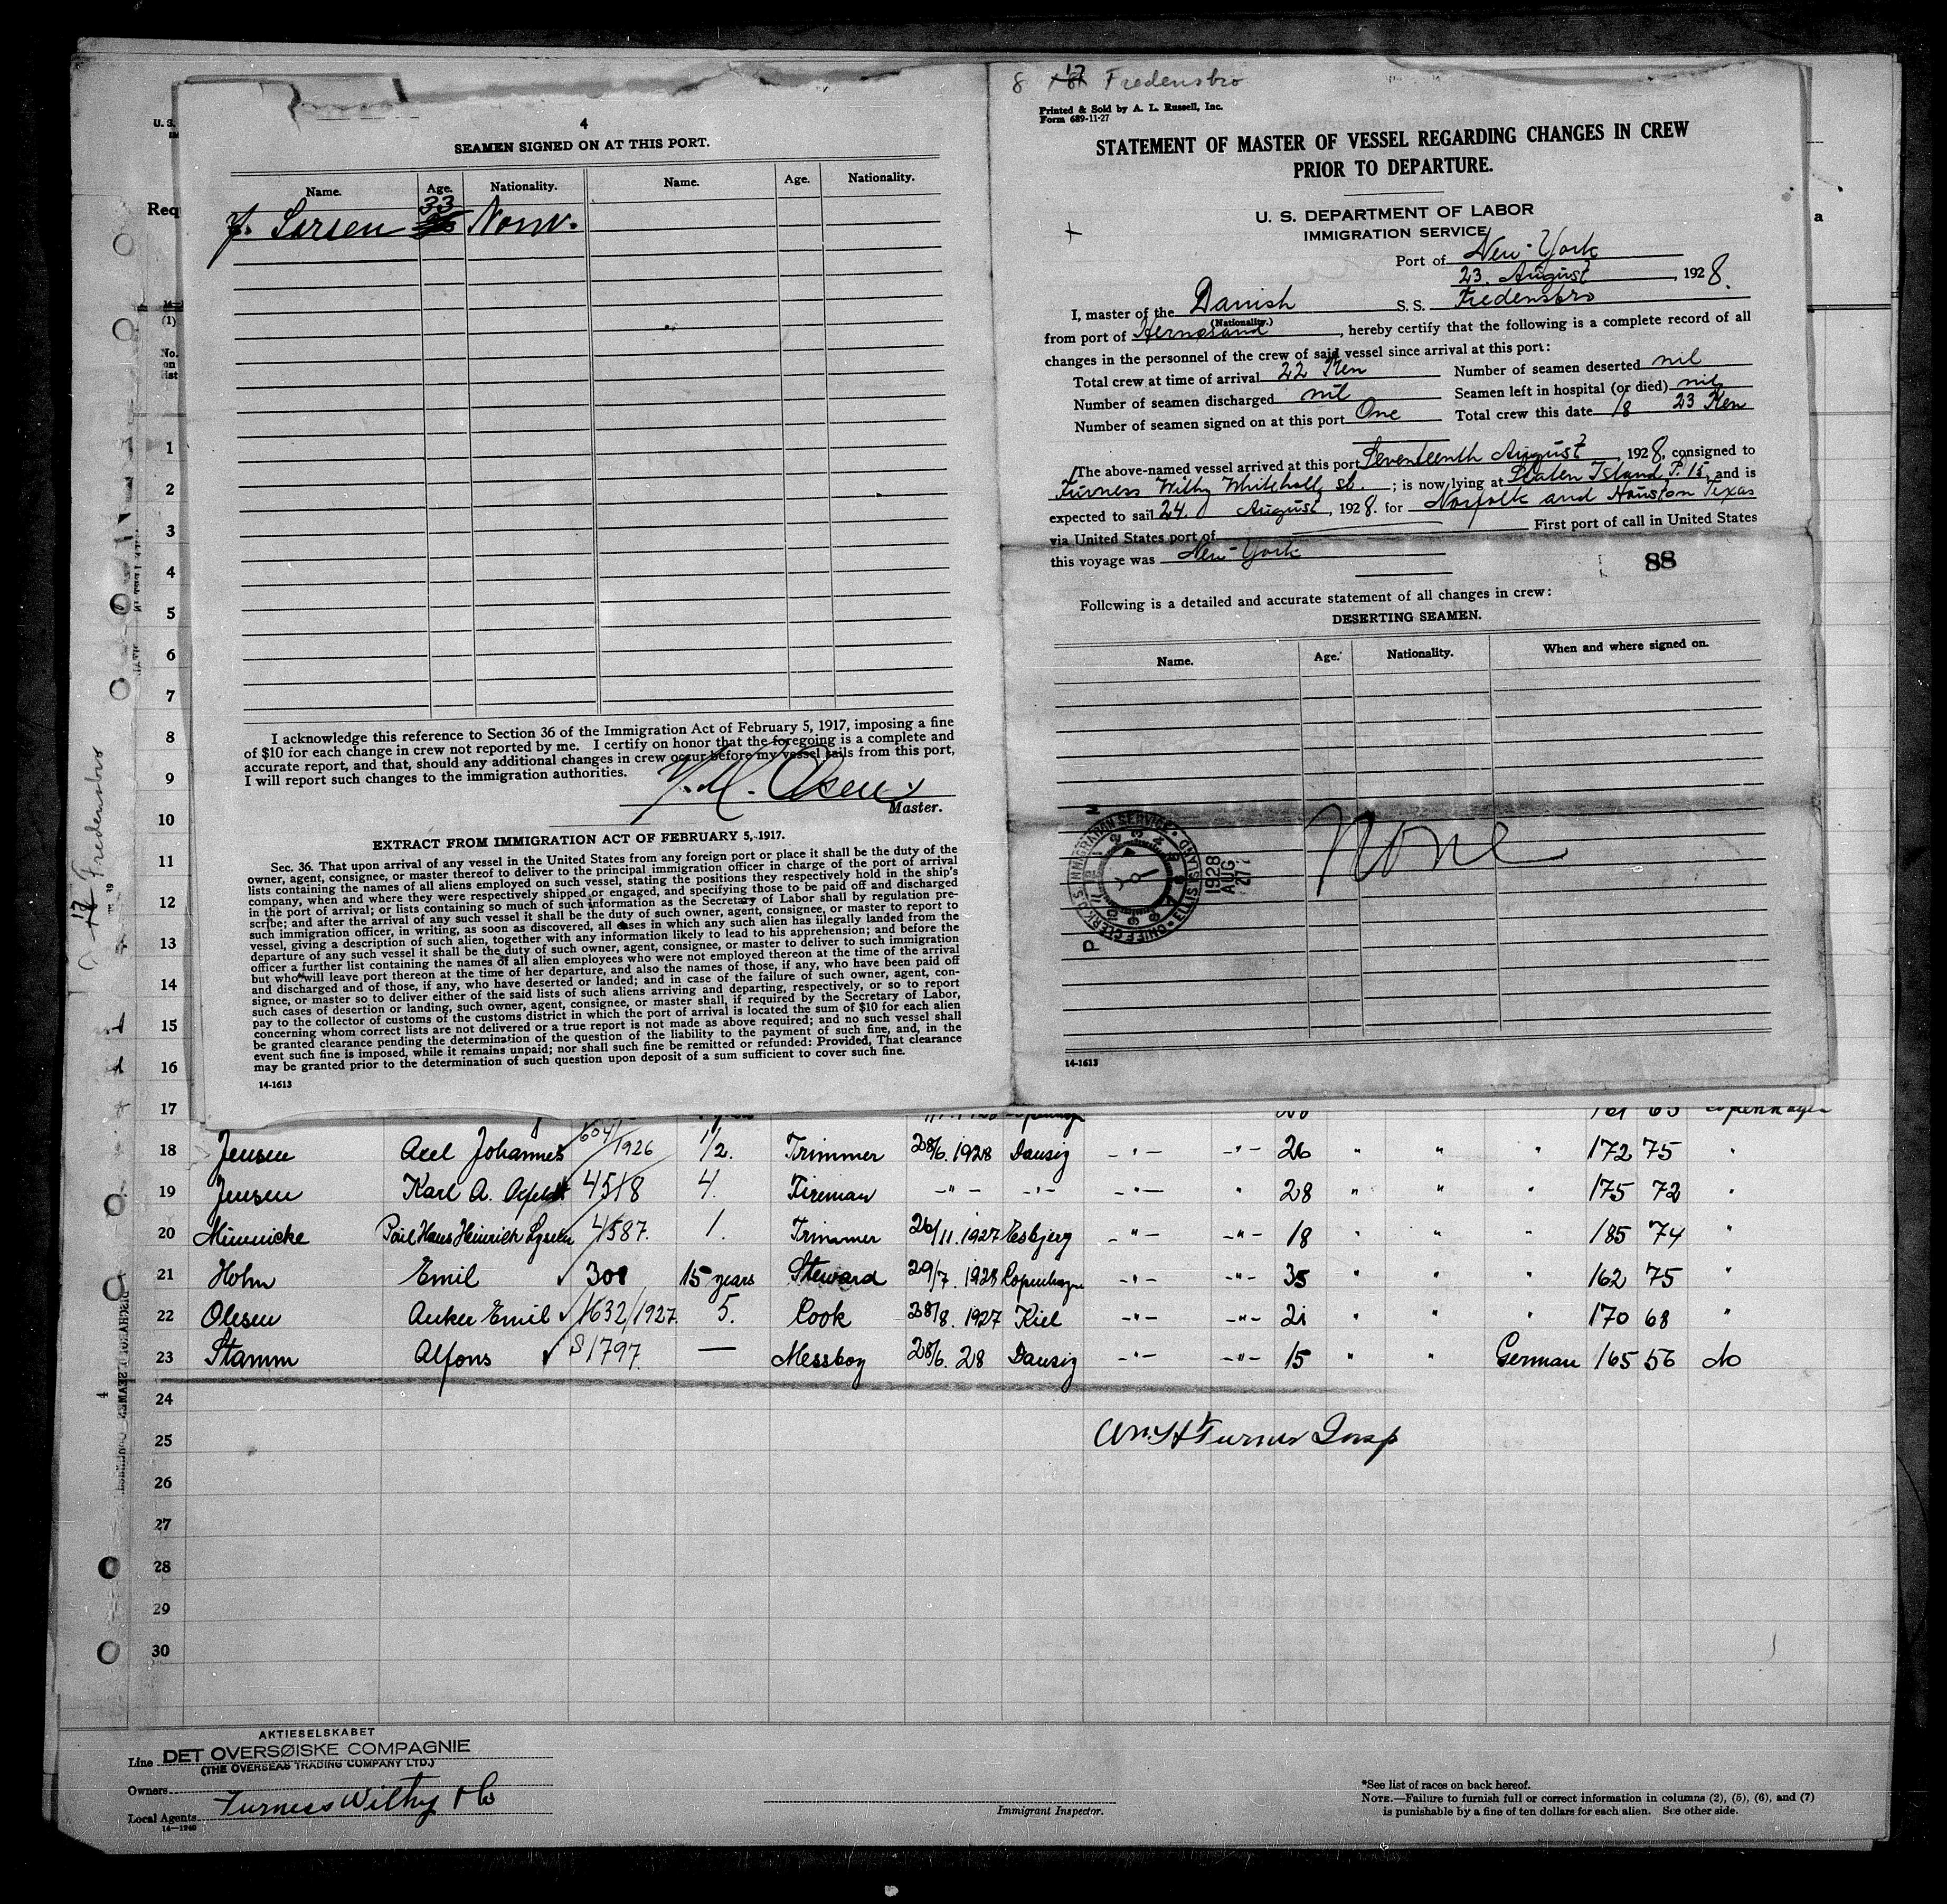 8 17 Fredensbro
Printed & Sold by A. L. Russell, Inc.
Form 689-11-27
STATEMENT OF MASTER OF VESSEL REGARDING CHANGES IN CREW
PRIOR TO DEPARTURE.
U. S. DEPARTMENT OF LABOR
IMMIGRATION SERVICE
Port of New-York
23. August, 1928.
I, master of the Danish S. S. Fredensbro
(Nationality.)
from port of Hernosand, hereby certify that the following is a complete record of all
changes in the personnel of the crew of said vessel since arrival at this port:
Total crew at time of arrival 22 Men Number of seamen deserted nil
Number of seamen discharged nil Seamen left in hospital (or died) nil
Number of seamen signed on at this port One Total crew this date 18 23 Men
The above-named vessel arrived at this port Seventeenth August, 1928, consigned to
Furness Withy Whitehall st.; is now lying at Staten Island P. 15, and is
expected to sail 24. August, 1928. for Norfolk and Houston Texas
via United States port of First port of call in United States
this voyage was New-York
88
Following is a detailed and accurate statement of all changes in crew:
DESERTING SEAMEN.
Name. Age. Nationality. When and where signed on.
None
CHIEF CLERK U.S. IMMIGRATION SERVICE ELLIS ISLAND
1928 AUG 27
PM
14-1613
4
SEAMEN SIGNED ON AT THIS PORT.
Name. Age. Nationality. Name. Age. Nationality.
33 Norw.
I acknowledge this reference to Section 36 of the Immigration Act of February 5, 1917, imposing a fine
of $10 for each change in crew not reported by me. I certify on honor that the foregoing is a complete and
accurate report, and that, should any additional changes in crew occur before my vessel sails from this port,
I will report such changes to the immigration authorities.
Olsen
Master.
EXTRACT FROM IMMIGRATION ACT OF FEBRUARY 5, 1917.
Sec. 36. That upon arrival of any vessel in the United States from any foreign port or place it shall be the duty of the
owner, agent, consignee, or master thereof to deliver to the principal immigration officer in charge of the port of arrival
lists containing the names of all aliens employed on such vessel, stating the positions they respectively hold in the ship's
company, when and where they were respectively shipped or engaged, and specifying those to be paid off and discharged
in the port of arrival; or lists containing so much of such information as the Secretary of Labor shall by regulation pre-
scribe; and after the arrival of any such vessel it shall be the duty of such owner, agent, consignee, or master to report to
such immigration officer, in writing, as soon as discovered, all cases in which any such alien has illegally landed from the
vessel, giving a description of such alien, together with any information likely to lead to his apprehension; and before the
departure of any such vessel it shall be the duty of such owner, agent, consignee, or master to deliver to such immigration
officer a further list containing the names of all alien employees who were not employed thereon at the time of the arrival
but who will leave port thereon at the time of her departure, and also the names of those, if any, who have been paid off
and discharged and of those, if any, who have deserted or landed; and in case of the failure of such owner, agent, con-
signee, or master so to deliver either of the said lists of such aliens arriving and departing, respectively, or so to report
such cases of desertion or landing, such owner, agent, consignee, or master shall, if required by the Secretary of Labor,
pay to the collector of customs of the customs district in which the port of arrival is located the sum of $10 for each alien
concerning whom correct lists are not delivered or a true report is not made as above required; and no such vessel shall
be granted clearance pending the determination of the question of the liability to the payment of such fine, and, in the
event such fine is imposed, while it remains unpaid; nor shall such fine be remitted or refunded: Provided, That clearance
may be granted prior to the determination of such question upon deposit of a sum sufficient to cover such fine.
14-1613
17 Fredensbro
U. S.
Req
(1)
No.
on
list
1
2
3
4
5
6
7
8
9
10
11
12
13
14
15
16
17 Copenhagen 161 65 Copenhagen
18 Jensen Axel Johannes 604/1926 1/2. Trimmer 28/6. 1928 Danzig -"- -"- 26 " " " 172 75 "
19 Jensen Karl A. 4518 4. Fireman -"- -"- -"- " 28 " " " 175 72 "
20 Minnicke Poul Hans Heinrich 4587. 1. Trimmer 26/11. 1927 Esbjerg -"- -"- 18 " " " 185 74 "
21 Holm Emil 308 15 years Steward 29/7. 1928 Copenhagen -"- -"- 35 " " " 162 75 "
22 Olesen Anker Emil 1632/1927. 5. Cook 28/8. 1927 Kiel -"- -"- 21 " " " 170 68 "
23 Stamm Alfons S1797. — Messboy 28/6. 28 Danzig -"- -"- 15 " " German 165 56 No
24
25 Wm. H Turner Insp
26
27
28
29
30
AKTIESELSKABET
Line DET OVERSØISKE COMPAGNIE
(THE OVERSEAS TRADING COMPANY LTD.)
Owners
Local Agents Furness Withy & Co
14-1240
Immigrant Inspector.
*See list of races on back hereof.
NOTE.—Failure to furnish full or correct information in columns (2), (5), (6), and (7)
is punishable by a fine of ten dollars for each alien. See other side.